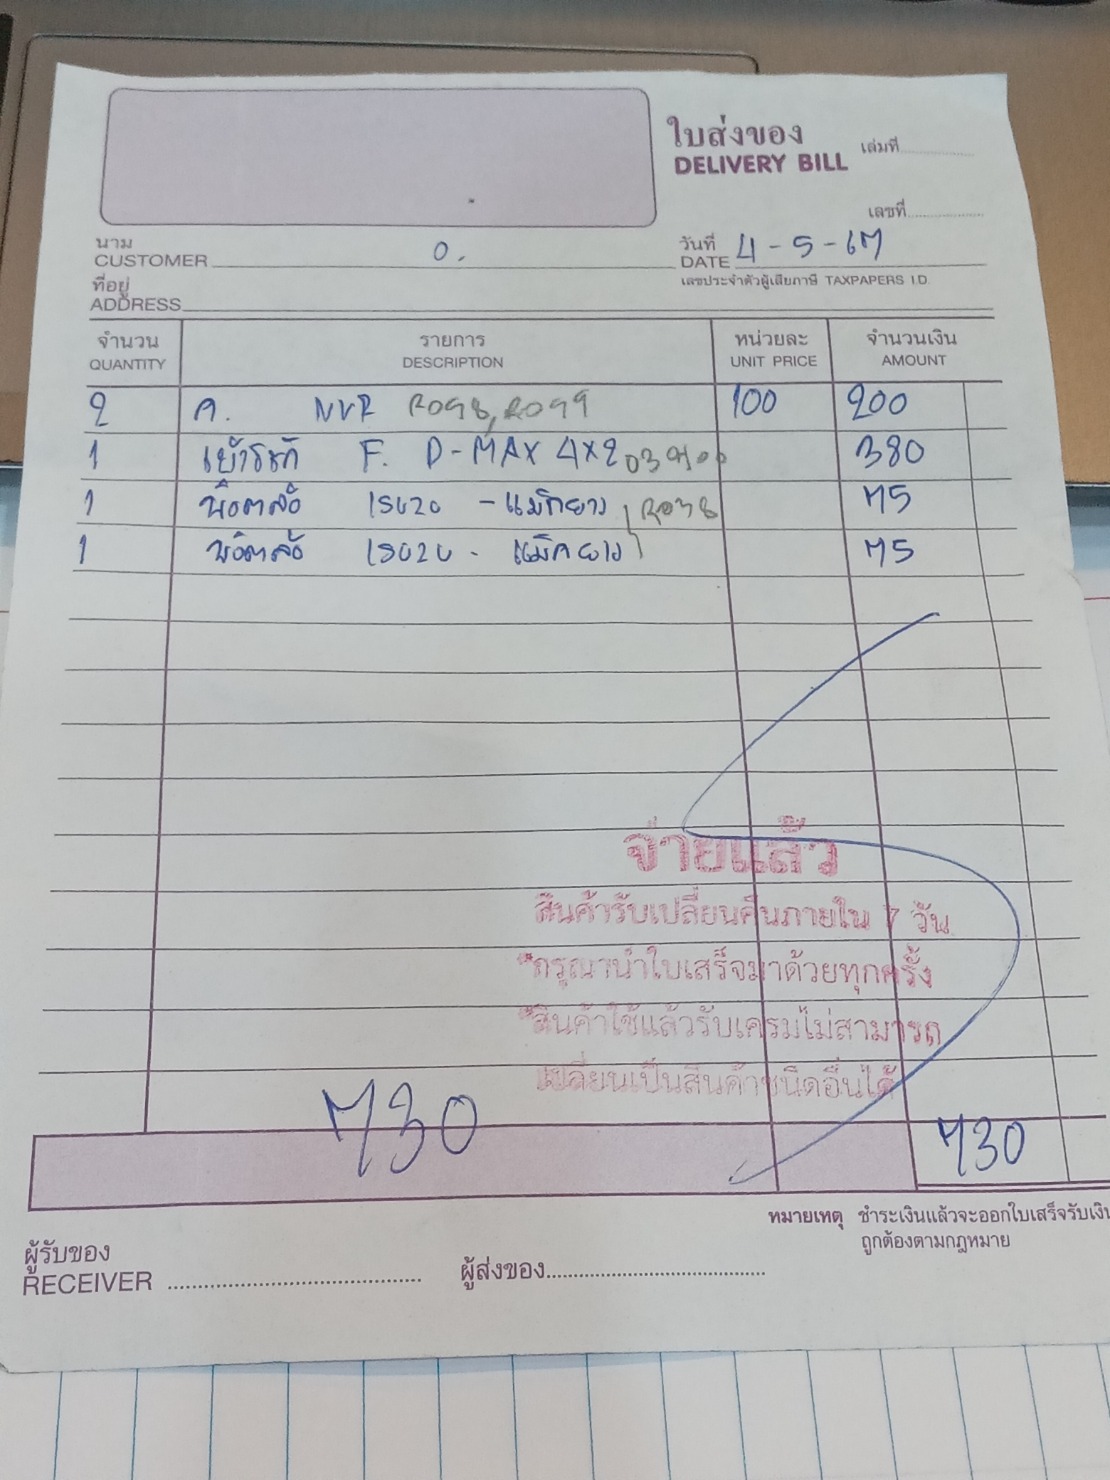 ใบส่งของ
DELIVERY BILL
เล่มที่
เลขที่
นาม
CUSTOMER 0.
วันที่
DATE 4-5-67
ที่อยู่
ADDRESS
เลขประจำตัวผู้เสียภาษี TAXPAPERS I.D.
จำนวน รายการ หน่วยละ จำนวนเงิน
QUANTITY DESCRIPTION UNIT PRICE AMOUNT
2 A. NVR R098, R099 100 200
1 F. D-MAX 4X2 380
1 - แม็กยาง R038 75
1 - แม็กยาง 75
จ่ายแล้ว
สินค้ารับเปลี่ยนคืนภายใน 7 วัน
*กรุณานำใบเสร็จมาด้วยทุกครั้ง
*สินค้าใช้แล้วรับเครมไม่สามารถ
เปลี่ยนเป็นสินค้าชนิดอื่นได้
730 730
หมายเหตุ ชำระเงินแล้วจะออกใบเสร็จรับเงิน
ถูกต้องตามกฎหมาย
ผู้รับของ
RECEIVER
ผู้ส่งของ